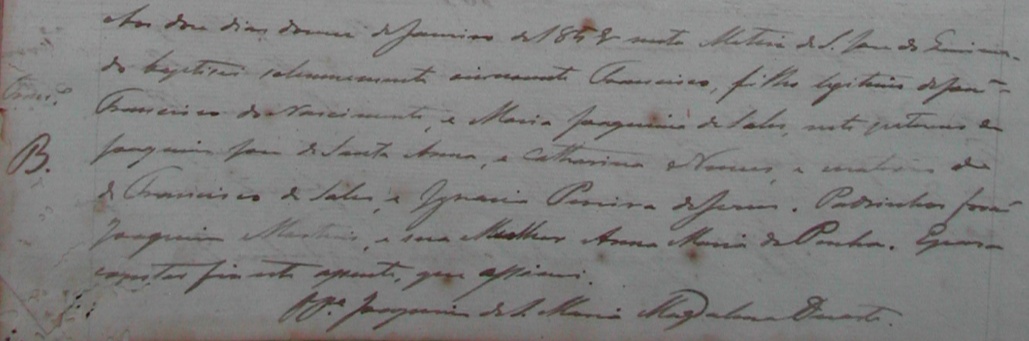 Aos doze dias do mez de Janeiro de 185 nesta Matriz de S. Jose do
do baptisei solemnemente innocente Francisco, filho legitimo de Joaõ
Franc.º
Francisco do Nascimento, e Maria Joaquina de Sales, neto paterno de
B.
Joaquim Jose de Santa Anna, e Catharina Nunes, e materno de
de Francisco de Sales, e Ignacia Pereira de Jesus. Padrinhos foraõ
Joaquim Martins, e sua Mulher Anna Maria da Penha. E para
constar fiz este assento, que assinei.
Joaquim de S. Maria Magdalena Duarte.